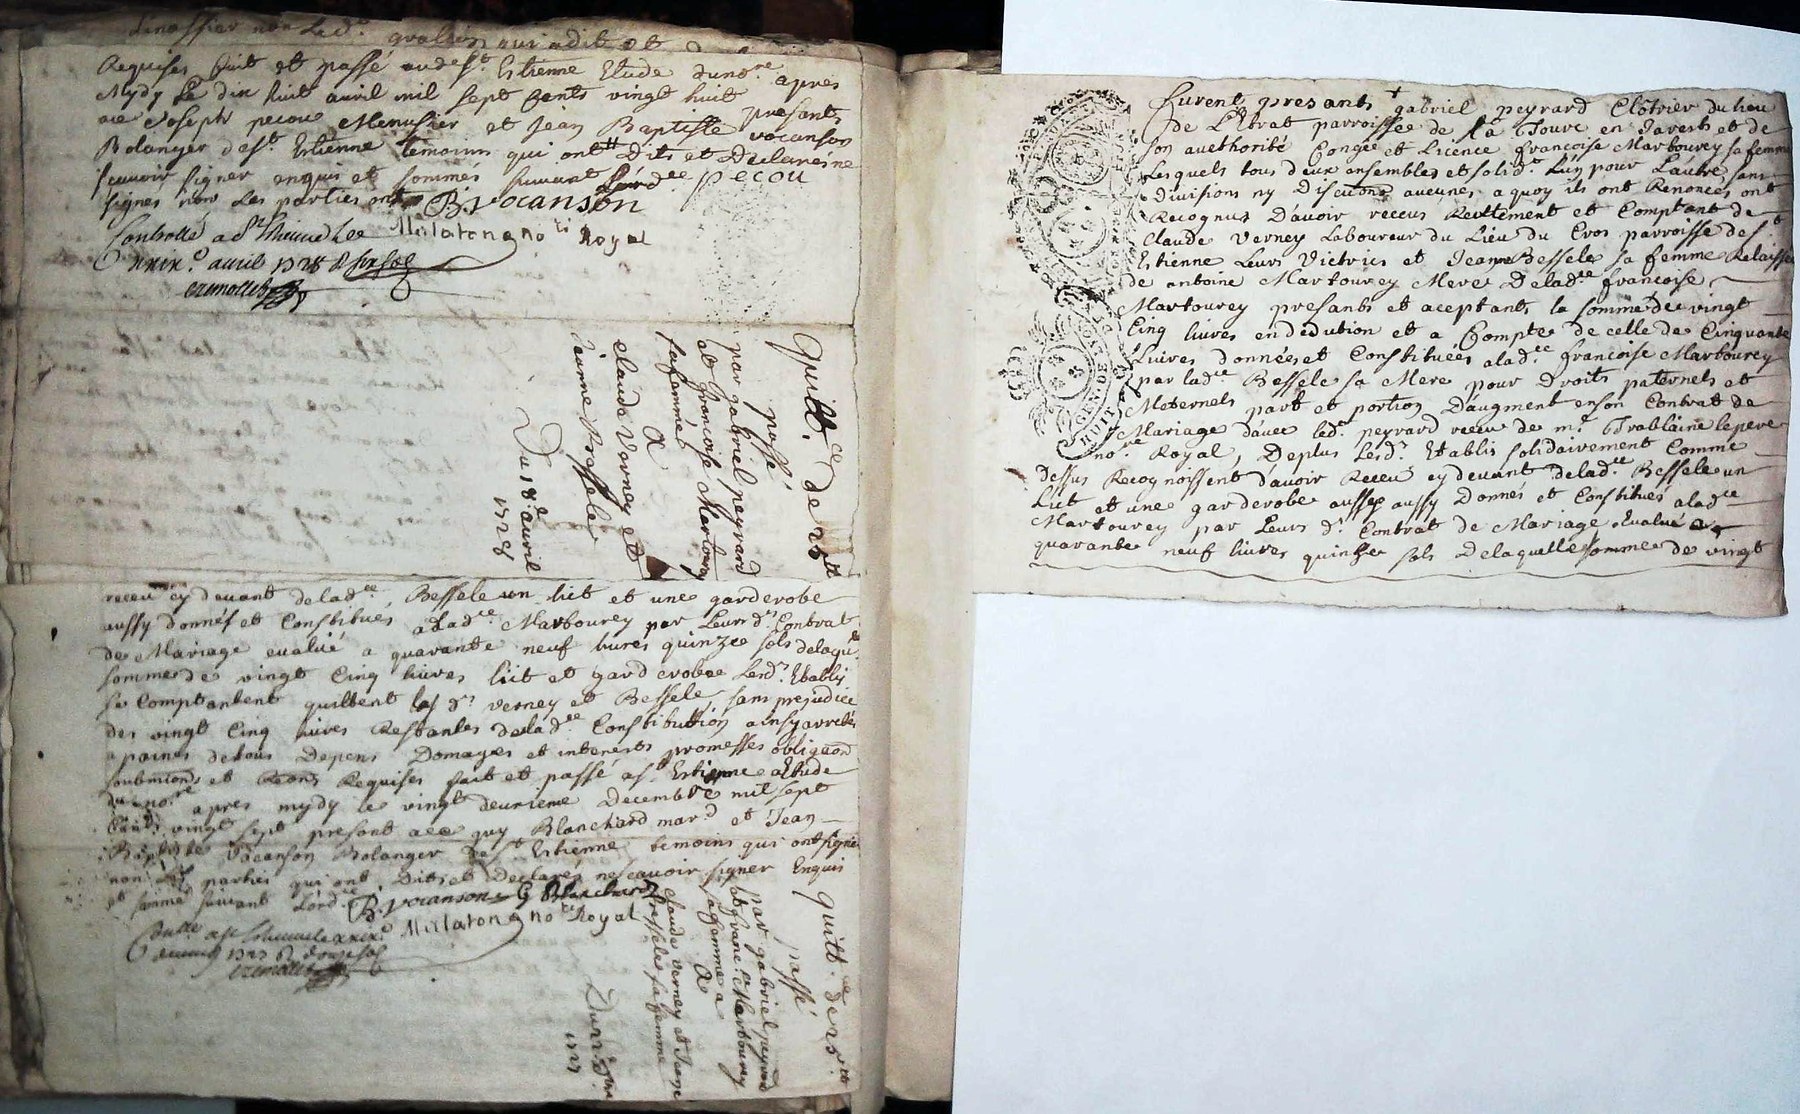 Requises fait et passé aud st. Estienne Etude dud nore. apres
Mydy Le dix huit avril mil sept Cents vingt huit
avec Joseph pecou Menusier et Jean Baptiste vocanson presants
Bolanger de st. Estienne temoins qui ont Dits et Declarés ne
scavoir signer enquis et sommés suivant Lordce pecou
signes non Les parties ont B. vocanson
Controllé a st. Estienne Lee Mulaton no re Royal
xxix.e avril 1728
Quittce. de 25 tt
passé
par gabriel peyrard
et francoise Martourey
sa femme
A
claude verney et
Jeanne Bessele
Du 18e avril
1728
receu cy devant de ladce. Bessele un lict et une garderobe
aussy donnés et Constitués a Ladce Martourey par Leursd. Contrat
de Mariage evalué a quarante neuf livres quinze sols delaqule.
somme de vingt Cinq livres lict et garderobe Lesdrs. Etablis
se Comptantent quittent lesdrs verney et Bessele sans prejudice
des vingt Cinq livres Restantes deladce Constitution ainsy arrestés
a peines de tous Depens Domages et interests promesses obligaons
soubmions et Reaons Requises fait et passé a st. Estienne Etude
du nore apres mydy le vingt deuxieme Decembre mil sept
Cents vingt sept present avec guy Blanchard mard et Jean
Baptiste Vocanson Bolanger de st Estienne temoins qui ont signé
non les parties qui ont Dits et Declarés ne scavoir signer Enquis
et sommé suivant Lordce B. vocanson G Blanchard
Mulaton no re Royal
Quittce. de 25 tt
passé
par gabriel peyrard
et franc.e Martourey
sa femme a
A
claude verney et Jeane
Bessele sa femme
Du 22 Dbre
1727
furent presants gabriel peyrard Clotrier du lieu
de L'Etrat parroisse de la Tour en Jarests et de
son authorité Congée et Licence francoise Martourey sa femme
Lesquels tous deux ensembles et solidt. L'un pour L'autre sans
division ny Discution aucunes a quoy ils ont Renoncés ont
Recognus D'avoir receus Reellement et Comptant de
Claude Verney Laboureur du Lieu du Cros parroisse de st
Estienne Leurs Vitrics et Jeanne Bessele sa femme Relaissée
de antoine Martourey Mere Deladce francoise
Martourey presants et aceptants la somme de vingt
Cinq livres en dedution et a Compte de celle de Cinquante
Livres données et Constituées aladce. francoise Martourey
par ladce Bessele sa Mere pour droits paternels et
Maternels part et portion D'augment en son Contrat de
Mariage d'avec ledr. peyrard receu de me Trablaine le pere
nore Royal, De plus Lesdr. Etablis solidairement Comme
dessus Recognoissent d'avoir Receu cy devant deladce Bessele un
Lict et une garderobe aussy Donnés et Constitués aladce
Martourey par Leurs dr. Contrat de Mariage Evalué a
quarante neuf livres quinze sols Delaquelle somme de vingt